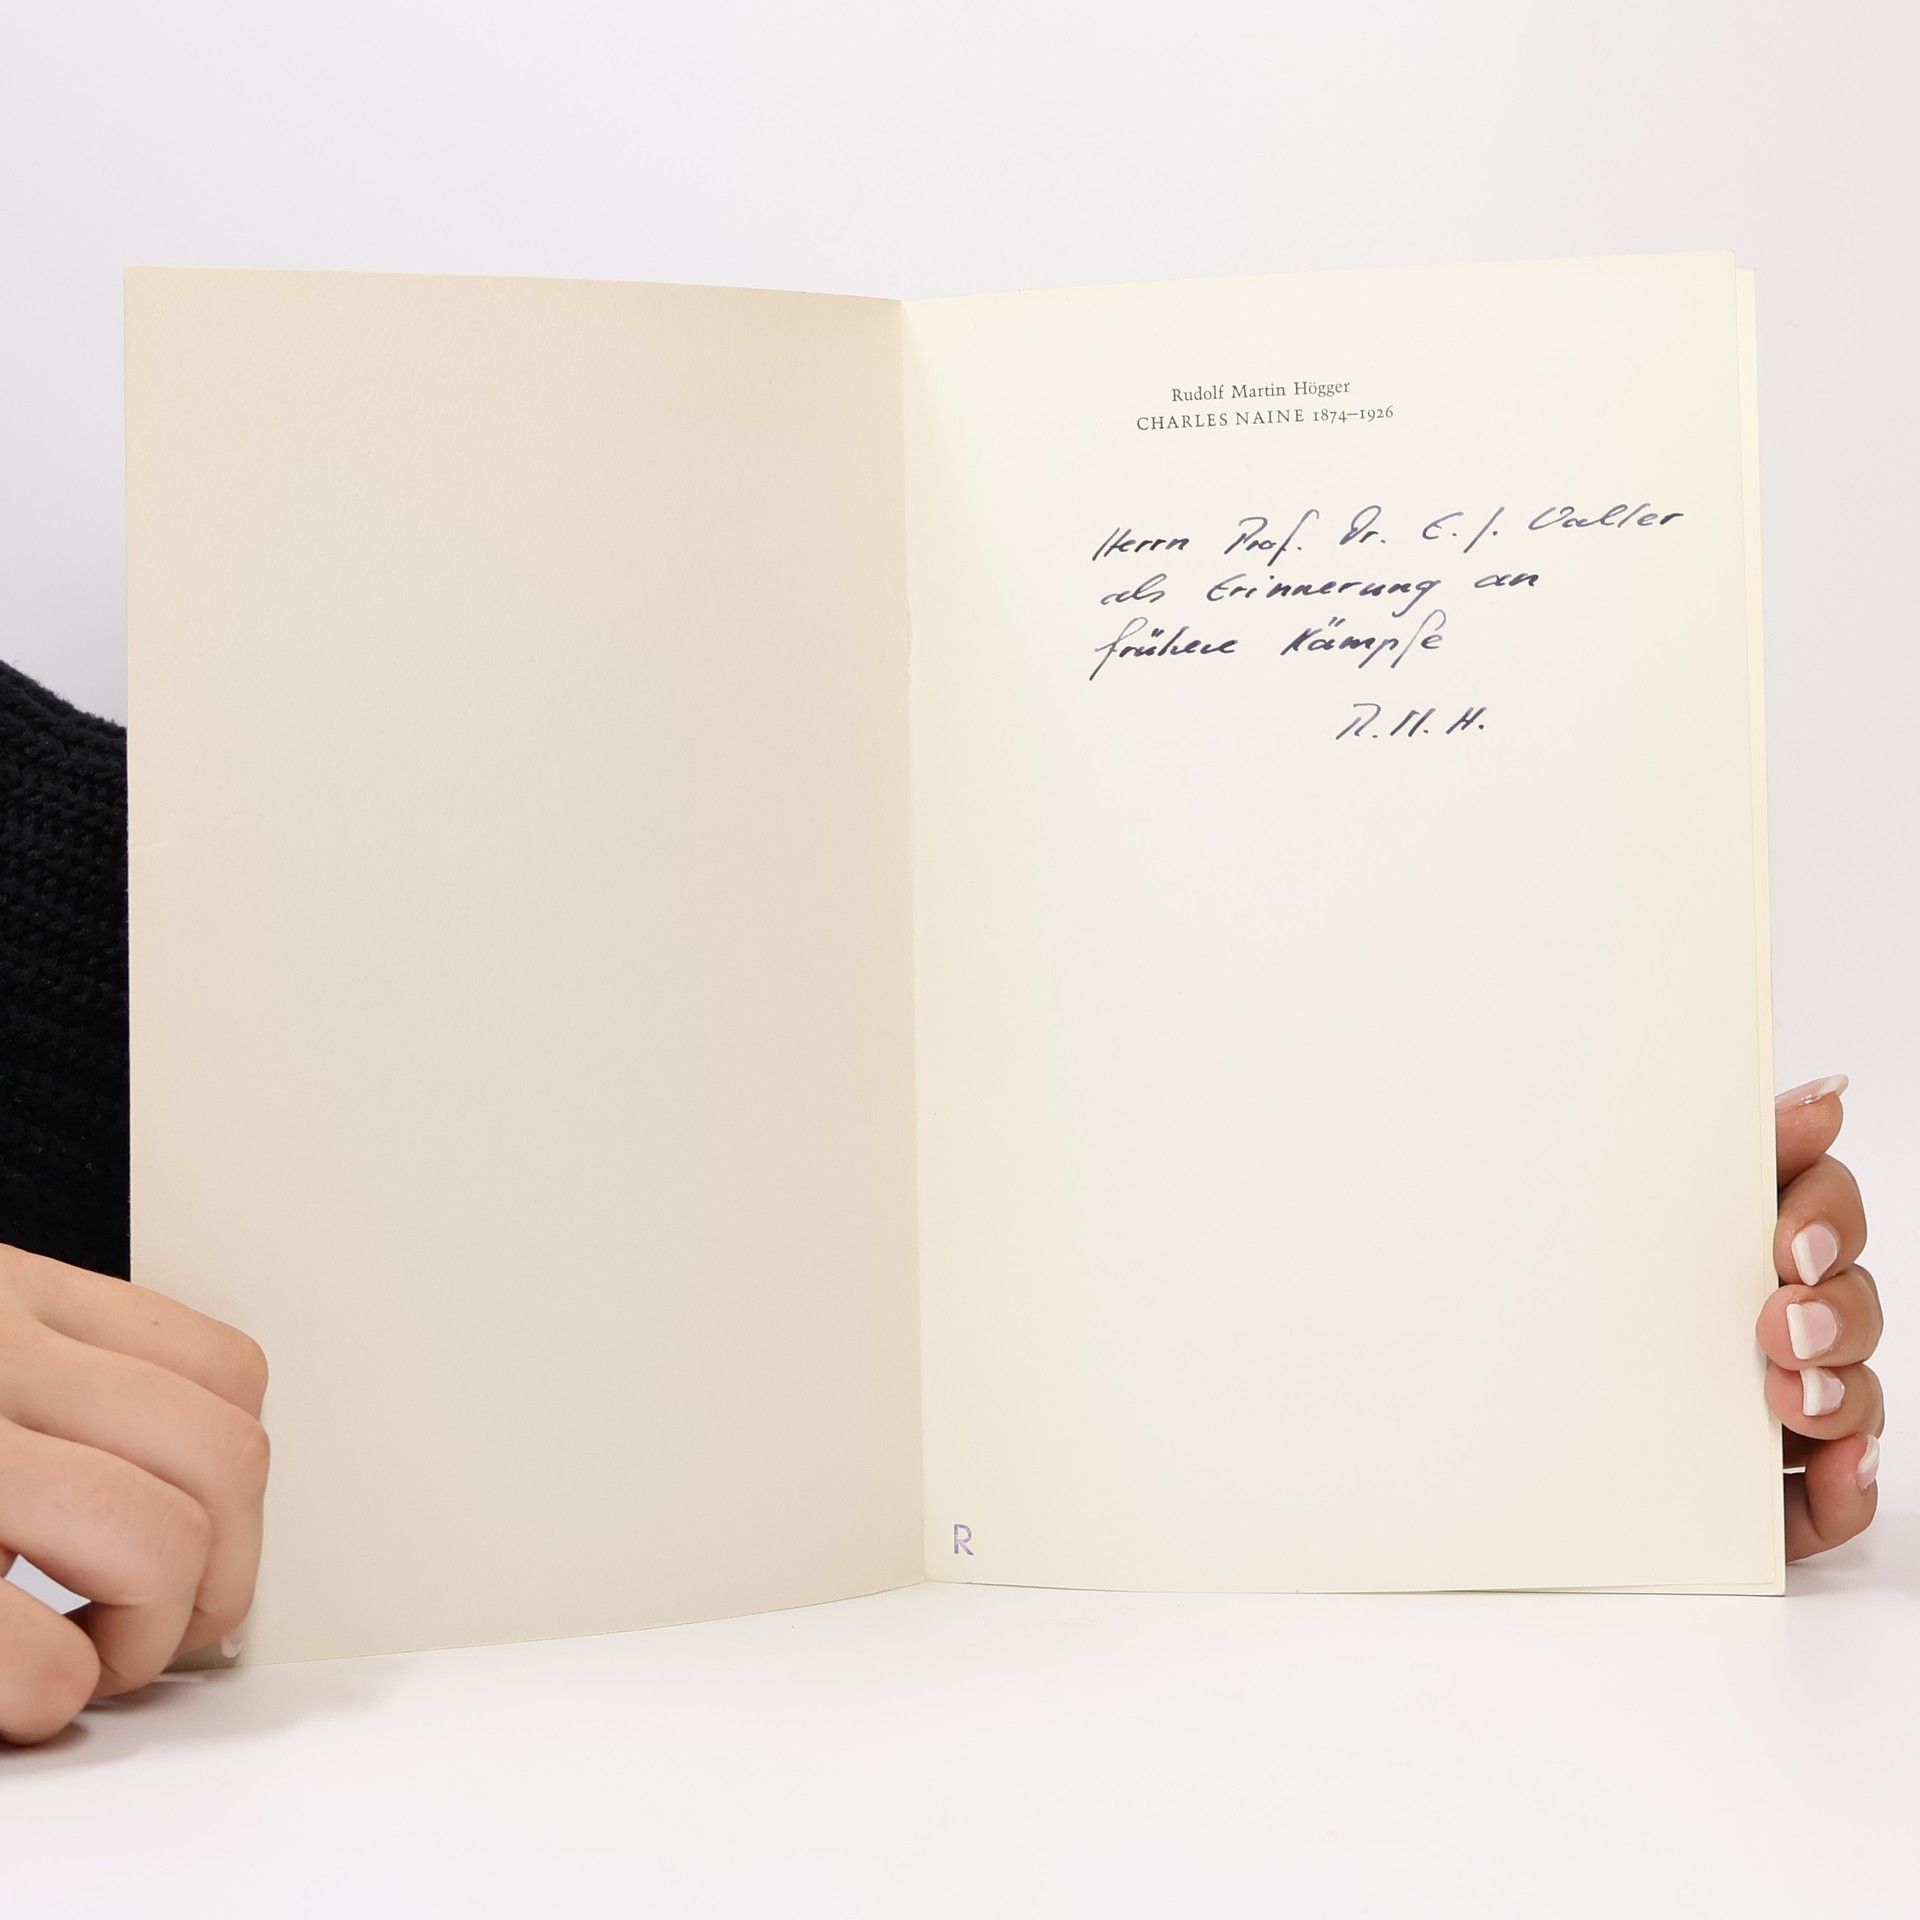 Rudolf Martin Högger
CHARLES NAINE 1874–1926
Herrn Prof. Dr. E. J. Walter
als Erinnerung an
frühere Kämpfe
R. M. H.
R